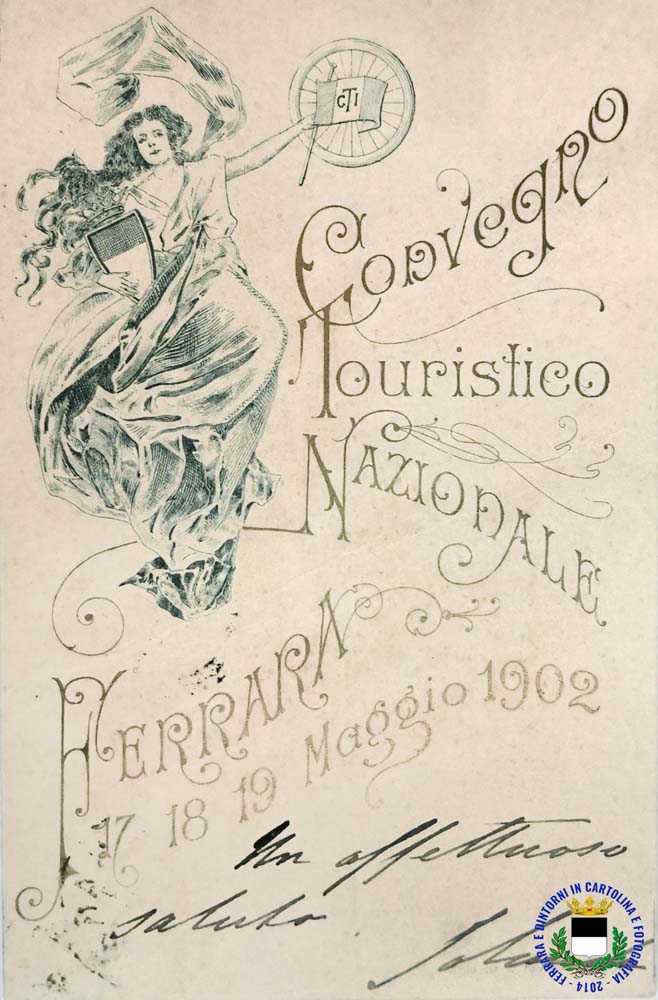 CTI
Convegno
Touristico
Nazionale
Ferrara
17 18 19 Maggio 1902
Un affettuoso
saluto
FERRARA E DINTORNI IN CARTOLINA E FOTOGRAFIA - 2014 -